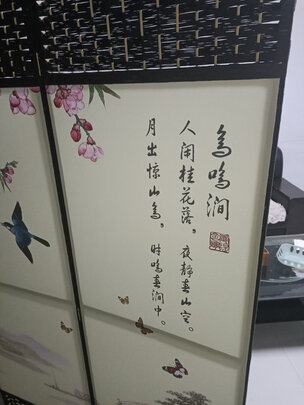 鸟鸣涧
人闲桂花落。夜静春山空。
月出惊山鸟。时鸣春涧中。